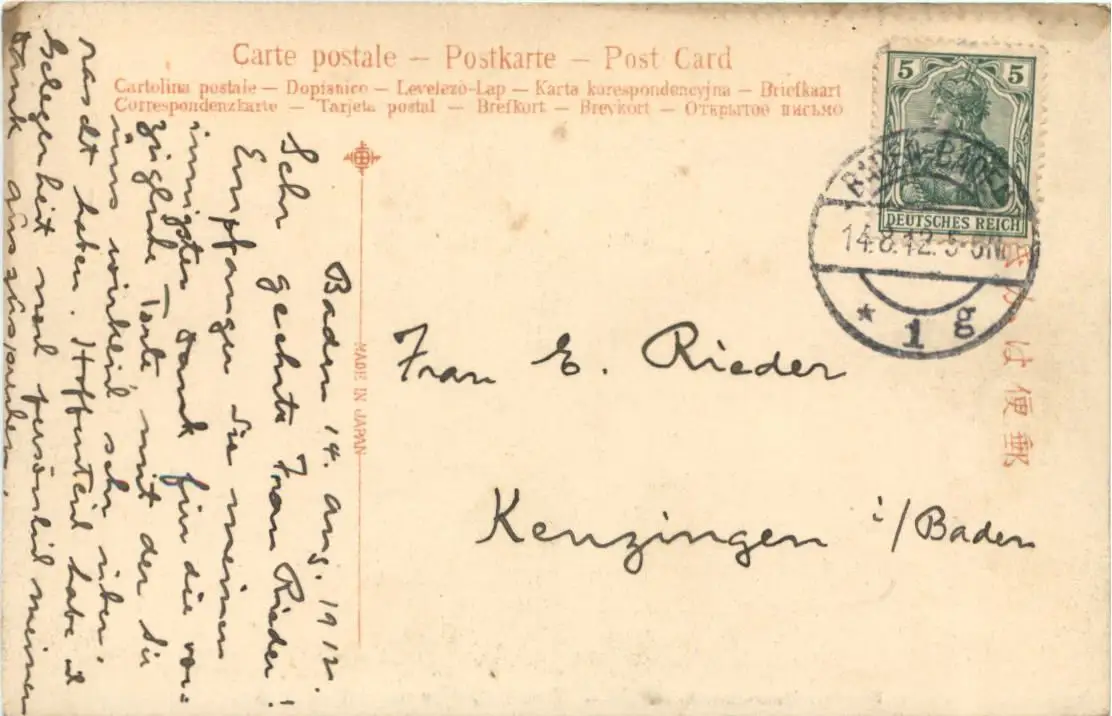 Carte postale – Postkarte – Post Card
Cartolina postale – Dopisnice – Levelező-Lap – Karta korespondencyjna – Briefkaart
Correspondenzkarte – Tarjeta postal – Brefkort – Brevkort – Открытое письмо
5 5
DEUTSCHES REICH
BADEN-BADEN
14.8.12.5-6N.
* 1 g
郵便はかき
MADE IN JAPAN
Frau E. Rieder
Kenzingen i/Baden
Baden 14. Aug. 1912.
Sehr geehrte Frau Rieder!
Empfangen Sie meinen
innigsten Dank für die vor-
zügliche Torte mit der Sie
uns wirklich sehr über-
rascht haben. Hoffentlich habe ich
Gelegenheit noch persönlich meinen
Dank auszusprechen.